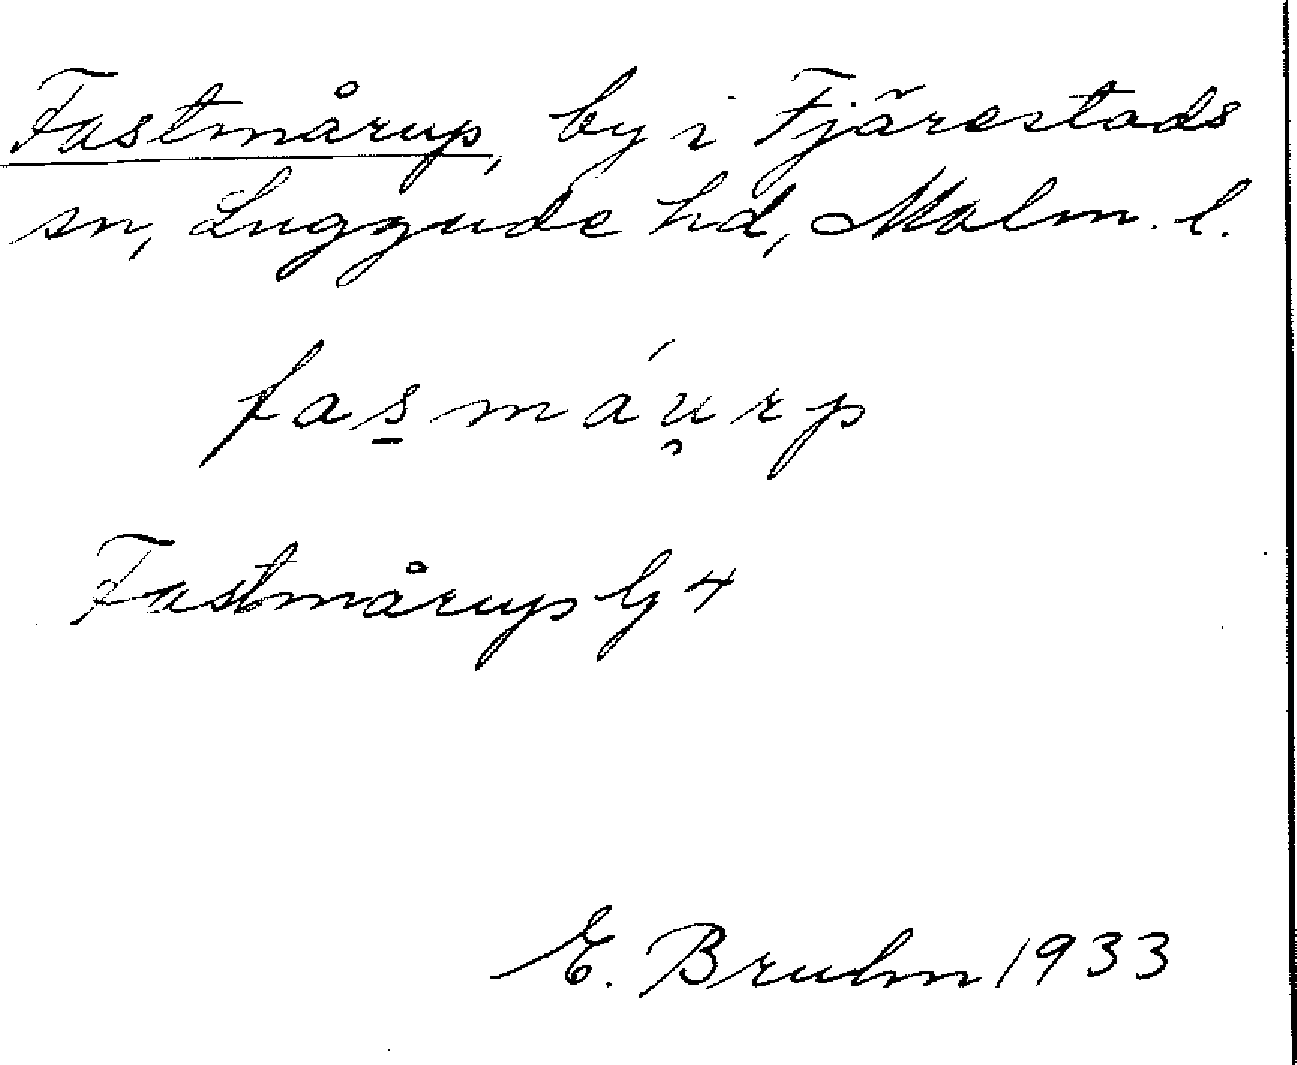 Fastmårup, by i Fjärestads
sn, Luggude hd, Malm. l.
fas̲máu̯rp
Fastmårup G 4
E. Bruhn 1933